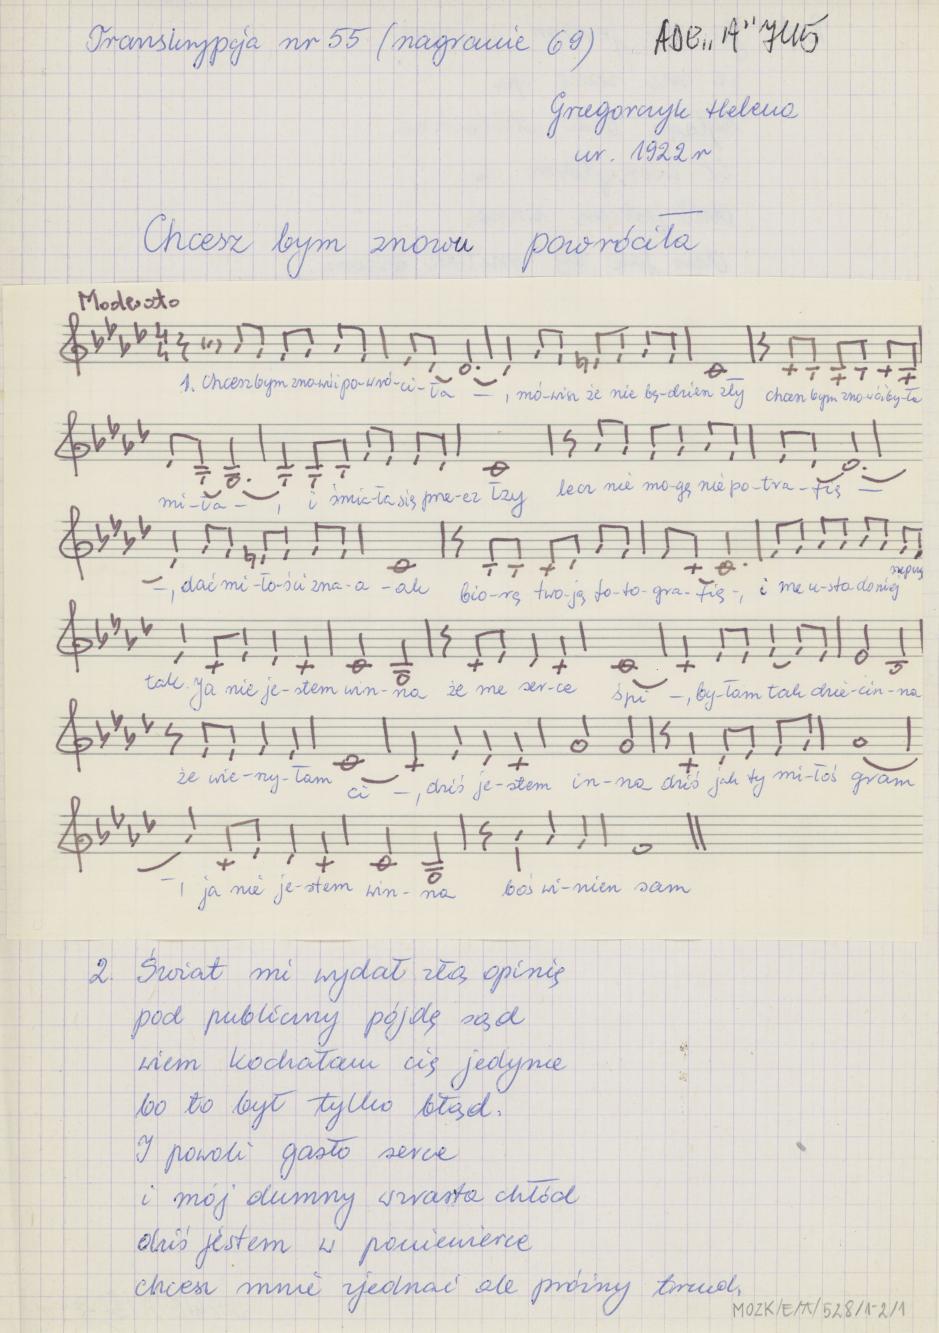 Transkrypcja nr 55 (nagranie 69) ADE „A" 7415
Grzegorczyk Helena
ur. 1922 r
Chcesz bym znowu powróciła
Moderato
1. Chcesz bym zno-wu po-wró-ci-ła –, mó-wisz że nie bę-dziesz zły chcesz bym zno-wu by-ła
mi-ła –, i śmia-ła się prze-ez łzy lecz nie mo-gę nie po-tra-fię –
–, dać mi-ło-ści zna-a-ak bio-rę two-ją fo-to-gra-fię-, i me u-sta do niej
tak. Ja nie je-stem win-na że me ser-ce śpi –, by-łam tak dzie-cin-na
że wie-rzy-łam ci –, dziś je-stem in-na dziś jak ty mi-łoś gram
–, ja nie je-stem win-na boś wi-nien sam
2. Świat mi wydał złą opinię
pod publiczny pójdę sąd
wiem kochałam cię jedynie
bo to był tylko błąd.
I powoli gasło serce
i mój dumny wzrasta chłód
dziś jestem w poniewierce
chcesz mnie zjednać ale próżny trud.
MOZK/E/A/528/1-2/1